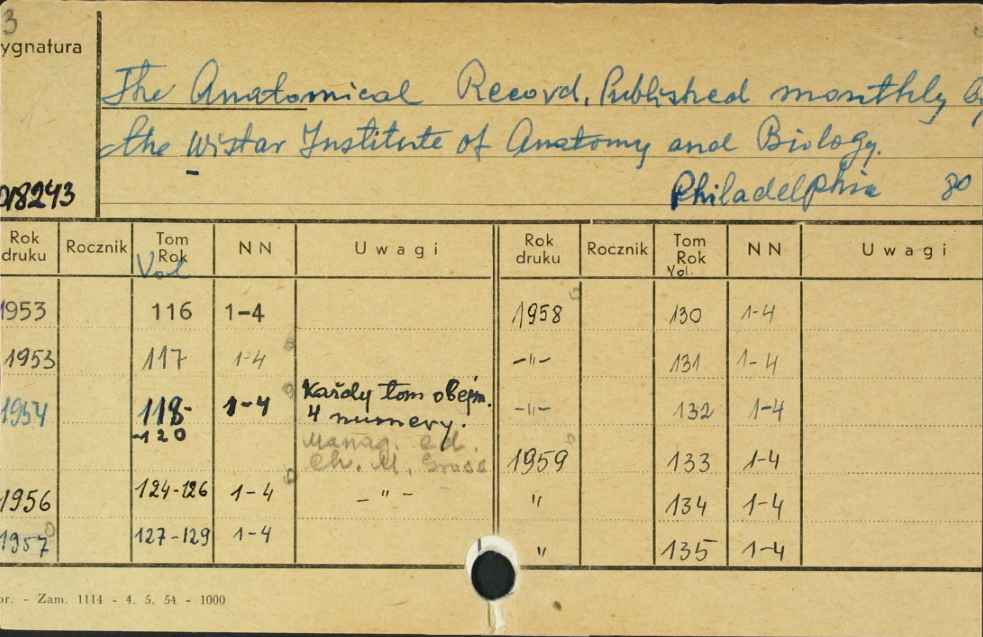 3
ygnatura
The Anatomical Record. Published monthly by
the Wistar Institute of Anatomy and Biology.
018243
Philadelphia 80
Rok druku Rocznik Tom Rok Vol N N Uwagi Rok druku Rocznik Tom Rok Vol. N N Uwagi
1953 116 1-4 1958 130 1-4
1953 117 1-4 -"- 131 1-4
1954 118- 1-4 Każdy tom obejm. -"- 132 1-4
-120 4 numery.
Manag. ed.
Ch. M. 1959 133 1-4
1956 124-126 1-4 - " - " 134 1-4
1957 127-129 1-4 " 135 1-4
or. - Zam. 1114 - 4. 5. 54 - 1000